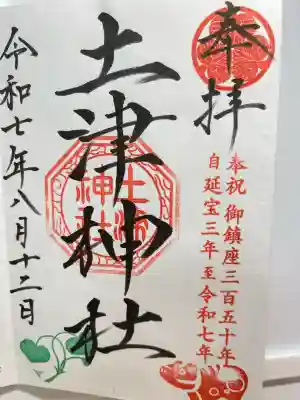 奉拝
奉祝 御鎮座三百五十年
自延宝三年至令和七年
土津神社
土津神社
令和七年八月十二日